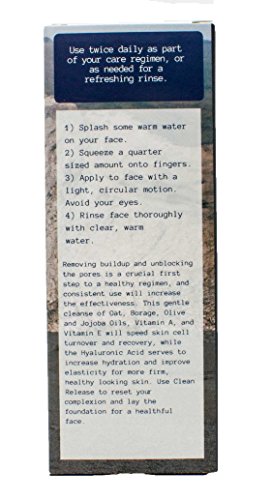 Use twice daily as part
of your care regimen, or
as needed for a
refreshing rinse.
1) Splash some warm water
on your face.
2) Squeeze a quarter
sized amount onto fingers.
3) Apply to face with a
light, circular motion.
Avoid your eyes.
4) Rinse face thoroughly
with clear, warm
water.
Removing buildup and unblocking
the pores is a crucial first
step to a healthy regimen, and
consistent use will increase
the effectiveness. This gentle
cleanse of Oat, Borage, Olive
and Jojoba Oils, Vitamin A, and
Vitamin E will speed skin cell
turnover and recovery, while
the Hyaluronic Acid serves to
increase hydration and improve
elasticity for more firm,
healthy looking skin. Use Clean
Release to reset your
complexion and lay the
foundation for a healthful
face.